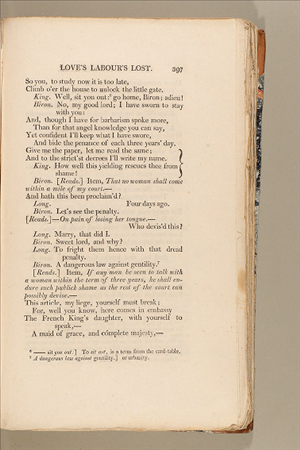 LOVE'S LABOUR'S LOST. 397
So you, to study now it is too late,
Climb o'er the house to unlock the little gate.
King. Well, sit you out:⁸ go home, Biron; adieu!
Biron. No, my good lord; I have sworn to stay
with you:
And, though I have for barbarism spoke more,
Than for that angel knowledge you can say,
Yet confident I'll keep what I have swore,
And bide the penance of each three years' day.
Give me the paper, let me read the same;
And to the strict'st decrees I'll write my name.
King. How well this yielding rescues thee from
shame!
Biron. [Reads.] Item, That no woman shall come
within a mile of my court.—
And hath this been proclaim'd?
Long. Four days ago.
Biron. Let's see the penalty.
[Reads.]—On pain of losing her tongue.—
Who devis'd this?
Long. Marry, that did I.
Biron. Sweet lord, and why?
Long. To fright them hence with that dread
penalty.
Biron. A dangerous law against gentility.⁹
[Reads.] Item, If any man be seen to talk with
a woman within the term of three years, he shall en-
dure such publick shame as the rest of the court can
possibly devise.—
This article, my liege, yourself must break;
For, well you know, here comes in embassy
The French King's daughter, with yourself to
speak,—
A maid of grace, and cómplete majesty,—
⁸ —— sit you out:] To sit out, is a term from the card-table.
⁹ A dangerous law against gentility.] or urbanity.